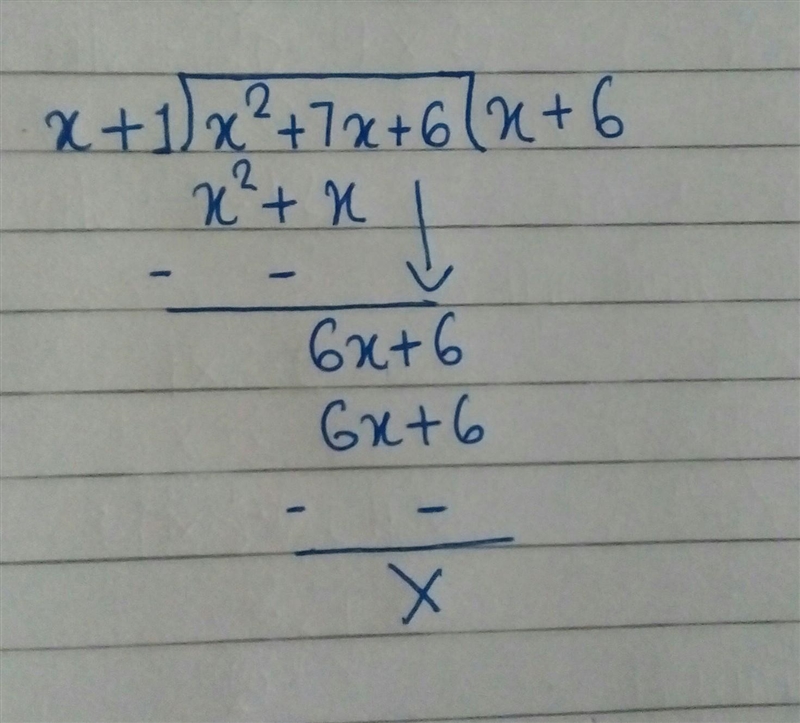 x + 1) x² + 7x + 6 ( x + 6
x² + x ↓
- -
6x + 6
6x + 6
- -
X